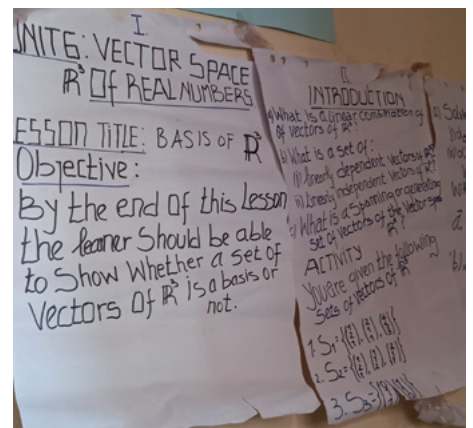 I.
UNIT6: VECTOR SPACE
ℝ³ Of REAL NUMBERS.
ESSON TITLE: BASIS OF ℝ³
Objective:
By the end of this Lesson
the learner Should be able
to Show Whether a set of
Vectors Of ℝ³ is a basis or
not.
II.
INTRODUCTION
a) What is a linear combination of
of vectors of ℝ³?
b) What is a set of:
(i) linearly dependent vectors of ℝ³?
ii) linearly independent vectors of ℝ³?
c) What is a Spanning or generating
set of vectors of the vector space
ℝ³?
ACTIVITY
You are given the following
Sets of Vectors of ℝ³
1. S₁=
2. S₂=
3. S₃=
a)